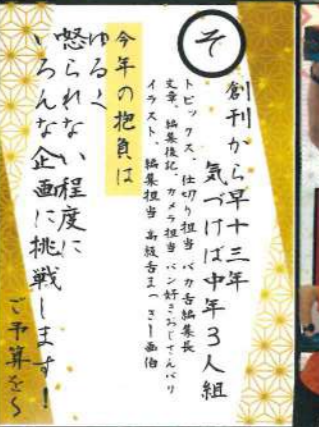 そ
創刊から早十三年
気づけば中年3人組
トピックス、仕切り担当 バカ舌編集長
文章、編集後記、カメラ担当 パン好きおじさんバリ
イラスト、編集担当 高級舌まつきし画伯
今年の抱負は
ゆるく
怒られない程度に
いろんな企画に挑戦します!
ご予算を〜